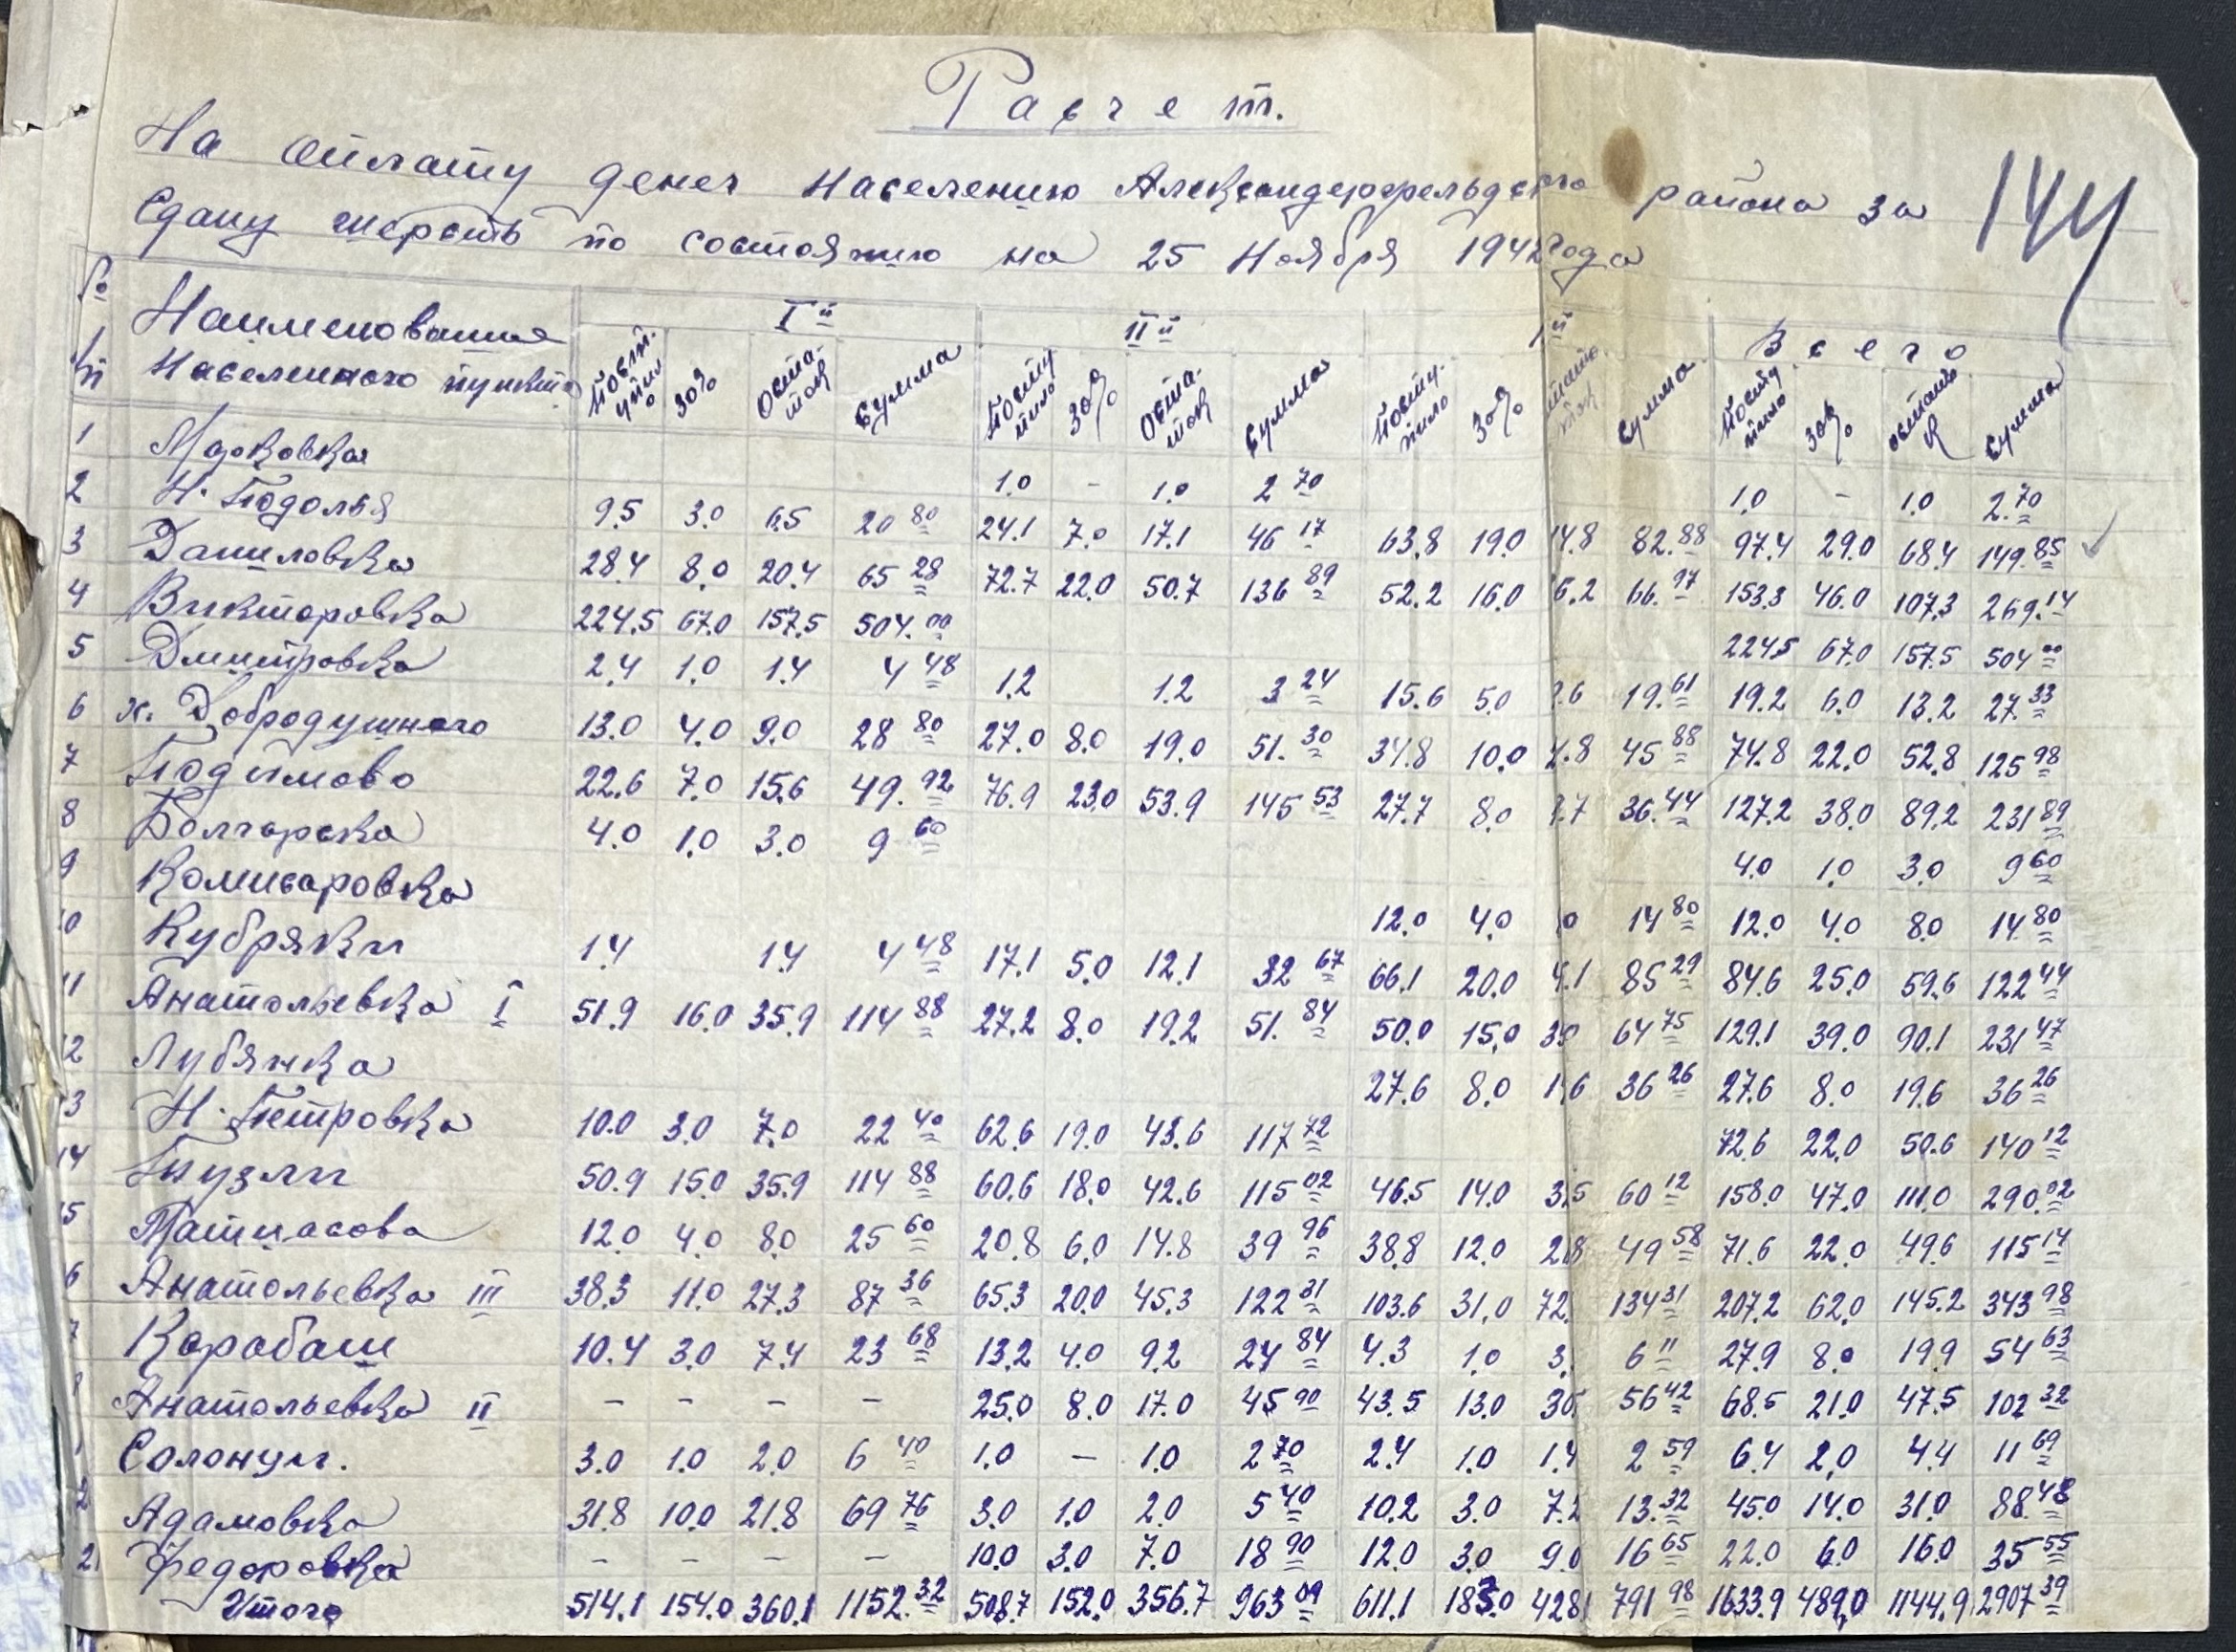 Расчет.
На оплату денег населению Александерфельдского района за
сдану шерсть по состоянию на 25 Ноября 1942 года
144
№ Наименование I й II й й Всего
пп населенного пункта Поступило 30% Остаток Сумма Поступило 30% Остаток Сумма Поступило 30% Сумма Поступило 30% остаток Сумма
1 Марковка 1.0 - 1.0 2 70 1.0 - 1.0 2.70
2 Н. Подолья 9.5 3.0 6.5 20 80 24.1 7.0 17.1 46 17 63.8 19.0 4.8 82.88 97.4 29.0 68.4 149.85
3 Даниловка 28.4 8.0 20.4 65 28 72.7 22.0 50.7 136 89 52.2 16.0 6.2 66.97 153.3 46.0 107.3 269.14
4 Викторовка 224.5 67.0 157.5 504.00 224.5 67.0 157.5 504 00
5 Дмитровка 2.4 1.0 1.4 4 48 1.2 1.2 3 24 15.6 5.0 .6 19.61 19.2 6.0 13.2 27.33
6 х. Добродушного 13.0 4.0 9.0 28 80 27.0 8.0 19.0 51.30 34.8 10.0 4.8 45 88 74.8 22.0 52.8 125 98
7 Подымово 22.6 7.0 15.6 49.92 76.9 23.0 53.9 145 53 27.7 8.0 .7 36.44 127.2 38.0 89.2 231 89
8 Болгарска 4.0 1.0 3.0 9 60 4.0 1.0 3.0 9 60
9 Комисаровка 12.0 4.0 0 14 80 12.0 4.0 8.0 14.80
10 Кубряки 1.4 1.4 4 48 17.1 5.0 12.1 32 67 66.1 20.0 4.1 85 29 84.6 25.0 59.6 122 44
11 Анатольевка I 51.9 16.0 35.9 114 88 27.2 8.0 19.2 51.84 50.0 15.0 35 64 75 129.1 39.0 90.1 231 47
12 Лубянка 27.6 8.0 1.6 36 26 27.6 8.0 19.6 36 26
3 Н. Петровка 10.0 3.0 7.0 22 40 62.6 19.0 43.6 117 72 72.6 22.0 50.6 140 12
14 Гнузлы 50.9 15.0 35.9 114 88 60.6 18.0 42.6 115 02 46.5 14.0 3.5 60 12 158.0 47.0 111.0 290.02
15 12.0 4.0 8.0 25 60 20.8 6.0 14.8 39 96 38.8 12.0 2.8 49 58 71.6 22.0 49.6 115 14
6 Анатольевка III 38.3 11.0 27.3 87 36 65.3 20.0 45.3 122 31 103.6 31.0 72. 134 31 207.2 62.0 145.2 343 98
7 Карабаш 10.4 3.0 7.4 23 68 13.2 4.0 9.2 24 84 4.3 1.0 3. 6 11 27.9 8.0 19.9 54 63
8 Анатольевка II - - - - 25.0 8.0 17.0 45 90 43.5 13.0 30 56 42 68.5 21.0 47.5 102 32
Солонци. 3.0 1.0 2.0 6 40 1.0 - 1.0 2 70 2.4 1.0 1.4 2 59 6.4 2.0 4.4 11 69
Адамовка 31.8 10.0 21.8 69 76 3.0 1.0 2.0 5 40 10.2 3.0 7.2 13.32 45.0 14.0 31.0 88.48
21 Федоровка - - - - 10.0 3.0 7.0 18 90 12.0 3.0 9.0 16 65 22.0 6.0 16.0 35 55
Итого 514.1 154.0 360.1 1152.32 508.7 152.0 356.7 963 09 611.1 183.0 428.1 791 98 1633.9 489.0 1144.9 2907 39